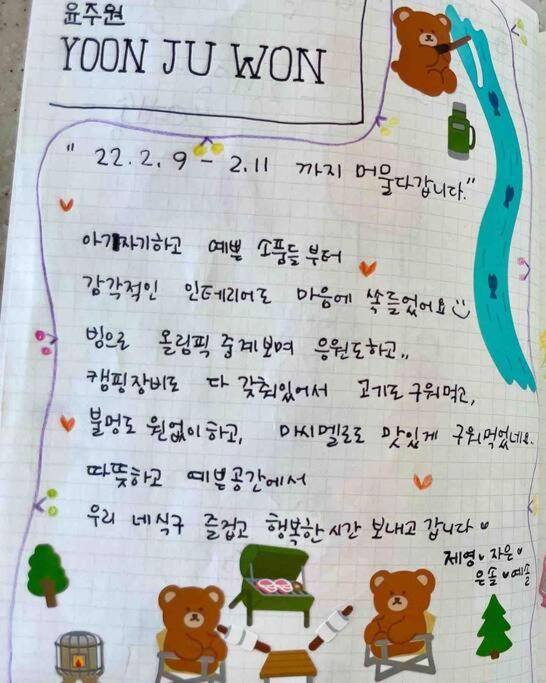 윤주원
YOON JU WON
" 22. 2. 9 - 2.11 까지 머물다갑니다."
아기자기하고 예쁜 소품들부터
감각적인 인테리어도 마음에 쏙 들었어요
빙으로 올림픽 중계보며 응원도하고,,
캠핑장비도 다 갖춰있어서 고기도 구워먹고,
불멍도 원없이하고, 마시멜로도 맛있게 구워먹었네요.
따뜻하고 예쁜공간에서
우리 네식구 즐겁고 행복한 시간 보내고 갑니다
제영 자은
은솔 예솔